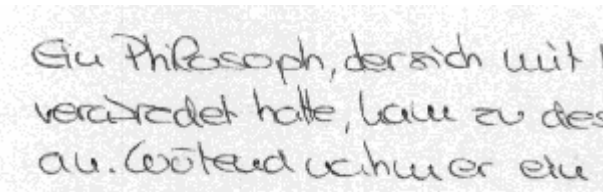 Ein Philosoph, der sich mit
verabredet hatte, kam zu des
an. Wütend nahm er ein